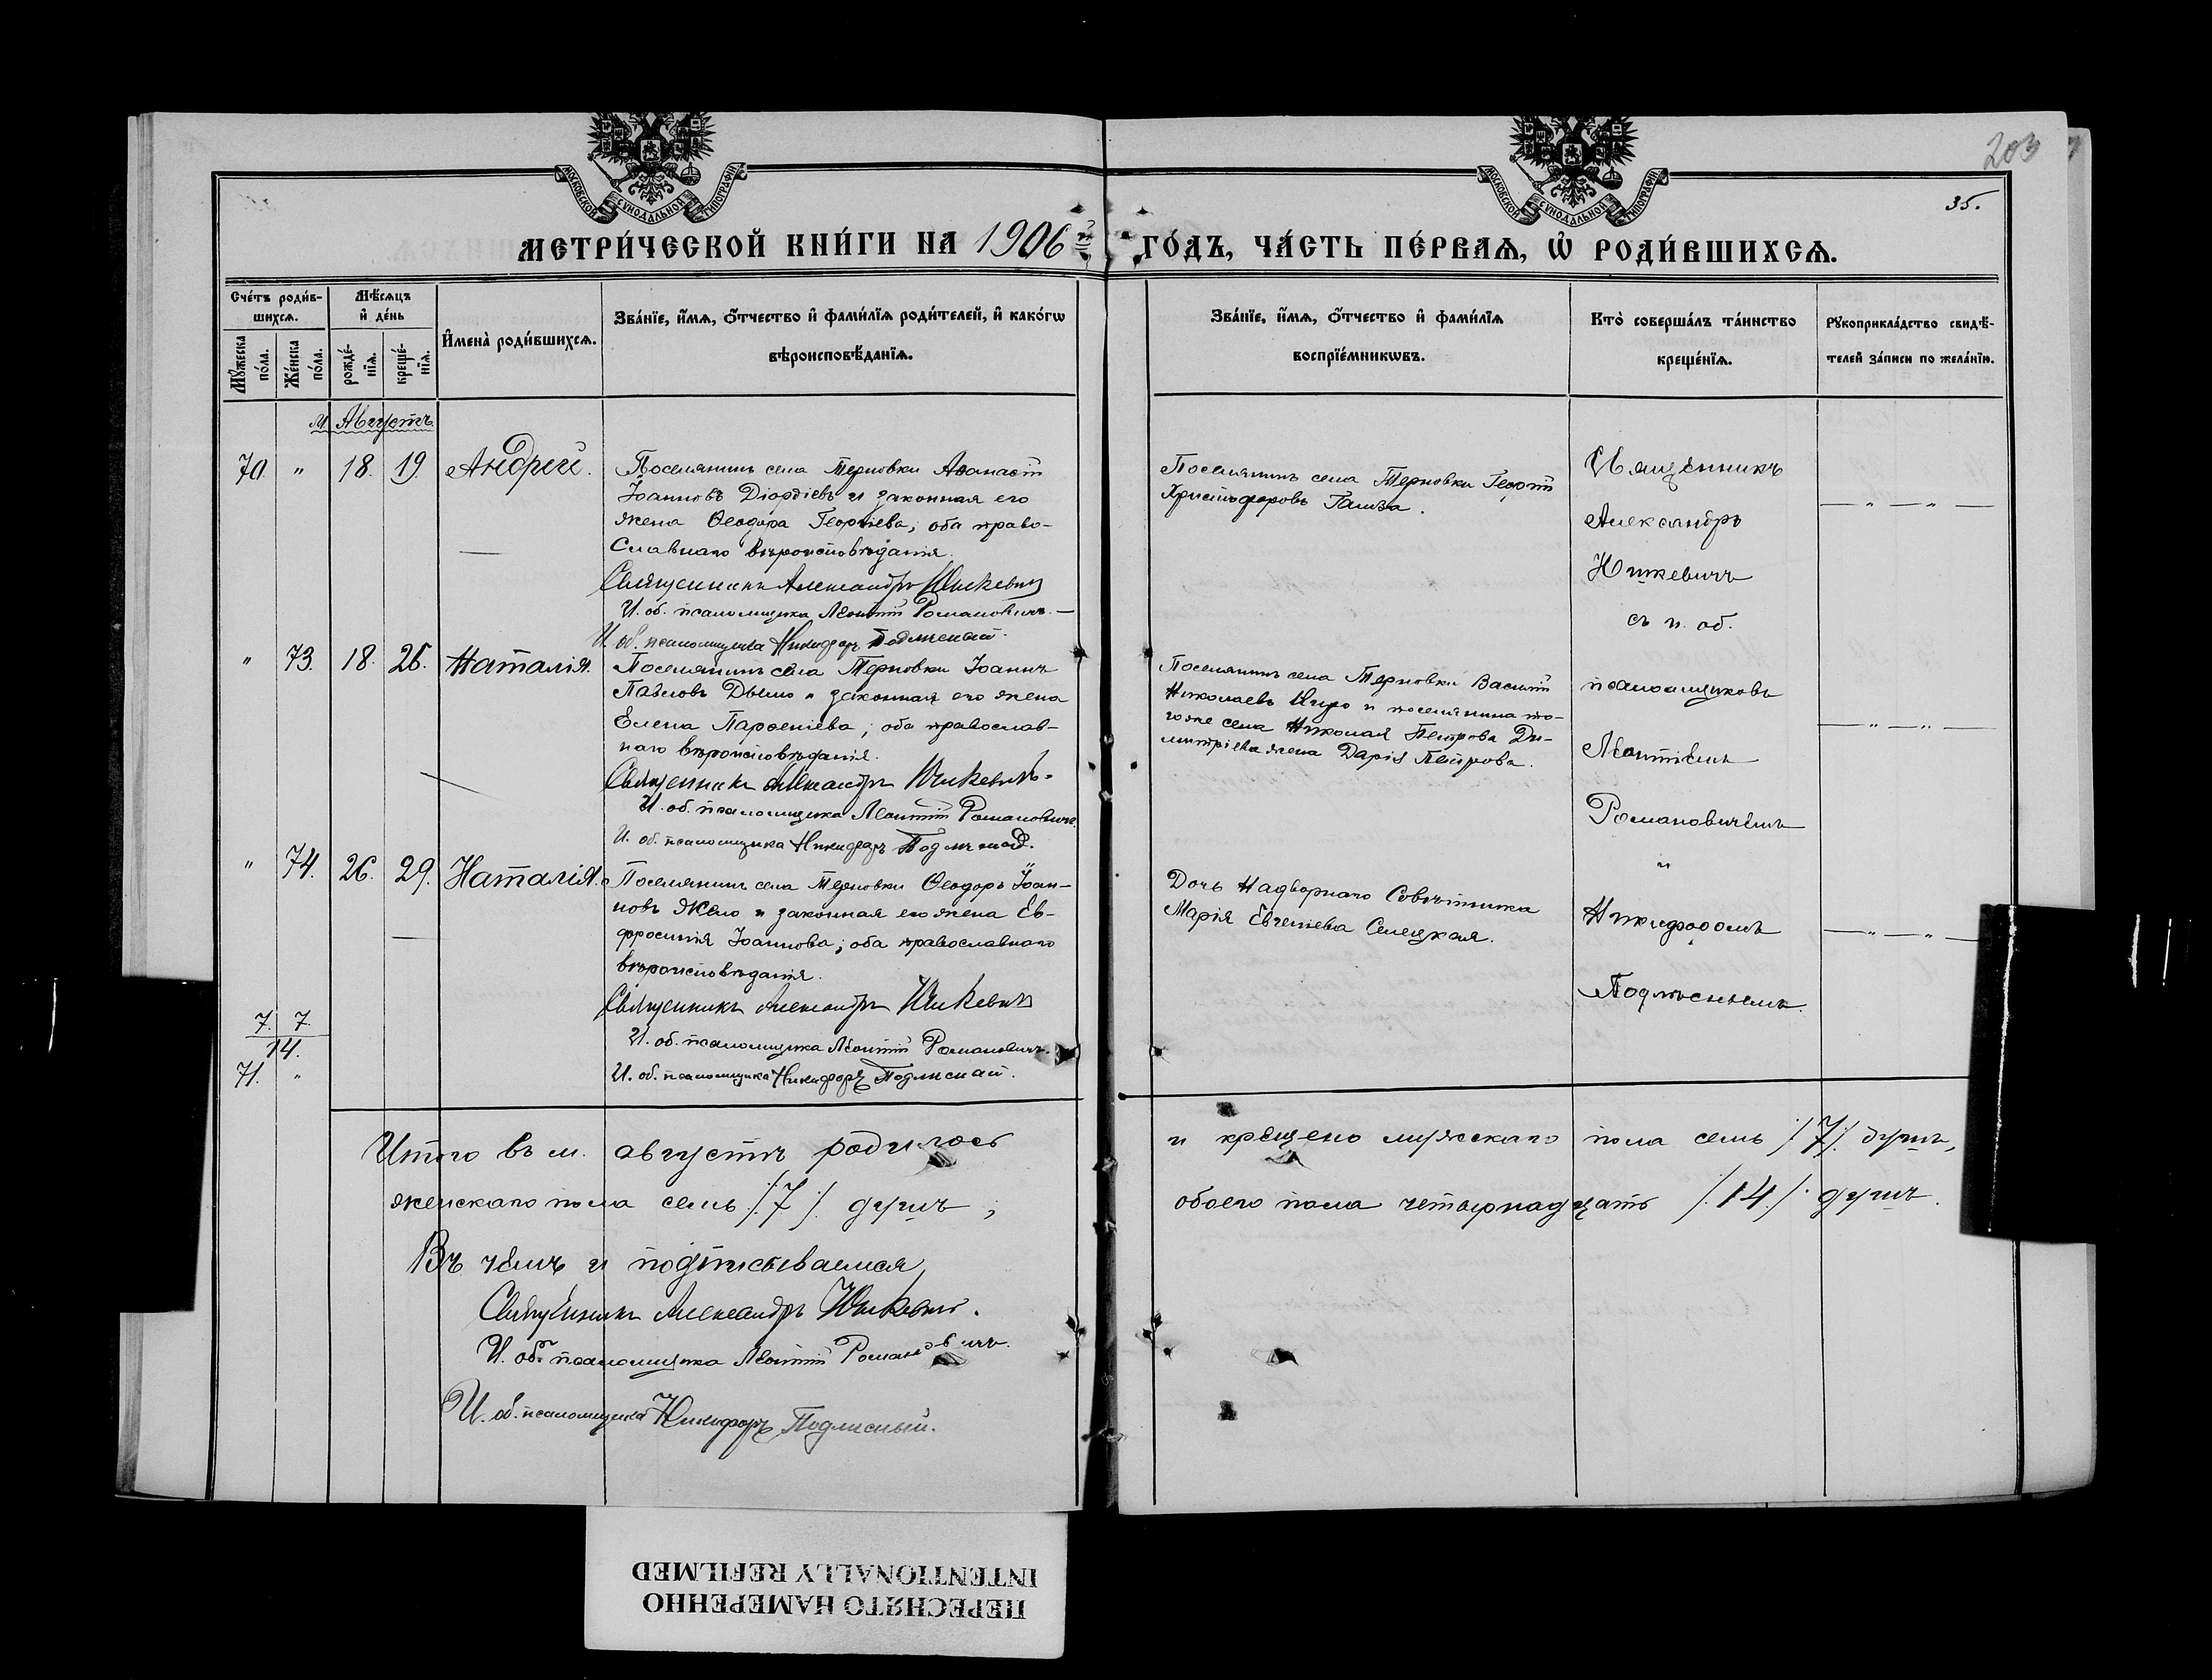 203
35.
МОСКОВСКОЙ СУНОДАЛЬНОЙ ТИПОГРАФІИ
МОСКОВСКОЙ СУНОДАЛЬНОЙ ТИПОГРАФІИ
МЕТРИ́ЧЕСКОЙ КНИ́ГИ НА 1906 й
ГО́ДЪ, ЧА́СТЬ ПЕ́РВАѦ, Ѡ҆ РОДИ́ВШИХСѦ.
Сче́тъ роди́в-
шихсѧ.
Мꙋ́жеска по́ла.
Же́нска по́ла.
Мѣ́сѧцъ
и҆ де́нь
рожде́-
нїѧ.
креще́-
нїѧ.
И҆мена̀ роди́вшихсѧ.
Зва́нїе, и҆́мѧ, ѻ҆́тчество и҆ фами́лїѧ роди́телей, и҆ како́гѡ
вѣроисповѣ́данїѧ.
Зва́нїе, и҆́мѧ, ѻ҆́тчество и҆ фами́лїѧ
воспрїе́мникѡвъ.
Кто̀ соверша́лъ та́инство
креще́нїѧ.
Рꙋкоприкла́дство свидѣ́-
телей за́писи по жела́нїю.
м. Августъ
70. " 18. 19. Андрей.
Поселянинъ села Терновки Аѳанасій
Іоанновъ Діордіевъ и законная его
жена Ѳеодора Георгіева; оба право-
славнаго вѣроисповѣданія.
Священникъ Александръ Юшкевичъ
И. об. псаломщика Леонтій Романовичъ.
И. об. псаломщика Никифоръ Подлѣсный.
Поселянинъ села Терновки Георгій
Христофоровъ
" 73. 18. 25. Наталія.
Поселянинъ села Терновки Іоаннъ
Павловъ Дымо и законная его жена
Елена Парѳеніева; оба православ-
наго вѣроисповѣданія.
Священникъ Александръ Юшкевичъ.
И. об. псаломщика Леонтій Романовичъ.
И. об. псаломщика Никифоръ Подлѣсный.
Поселянинъ села Терновки Василій
Николаевъ и поселянина то-
гоже села Николая Петрова Ди-
митріева жена Дарія Петрова.
" 74. 26. 29. Наталія.
Поселянинъ села Терновки Ѳеодоръ Іоан-
новъ Желю и законная его жена Ев-
фросинія Іоаннова; оба православнаго
вѣроисповѣданія.
Священникъ Александръ Юшкевичъ
И. об. псаломщика Леонтій Романовичъ.
И. об. псаломщика Никифоръ Подлѣсный.
Дочь Надворнаго Совѣтника
Марія Евгеніева Селецкая.
Священникъ
Александръ
Юшкевичъ
съ и. об.
псаломщиковъ
Леонтіемъ
Романовичемъ
и
Никифоромъ
Подлѣснымъ.
7. 7.
14.
71. "
Итого въ м. августѣ родилось
и крещено мужскаго пола семь /7/ душъ,
женскаго пола семь /7/ душъ;
обоего пола четырнадцать /14/ душъ.
Въ чемъ и подписываемся
Священникъ Александръ Юшкевичъ.
И. об. псаломщика Леонтій Романовичъ.
И. об. псаломщика Никифоръ Подлѣсный.
ПЕРЕСНЯТО НАМЕРЕННО
INTENTIONALLY REFILMED